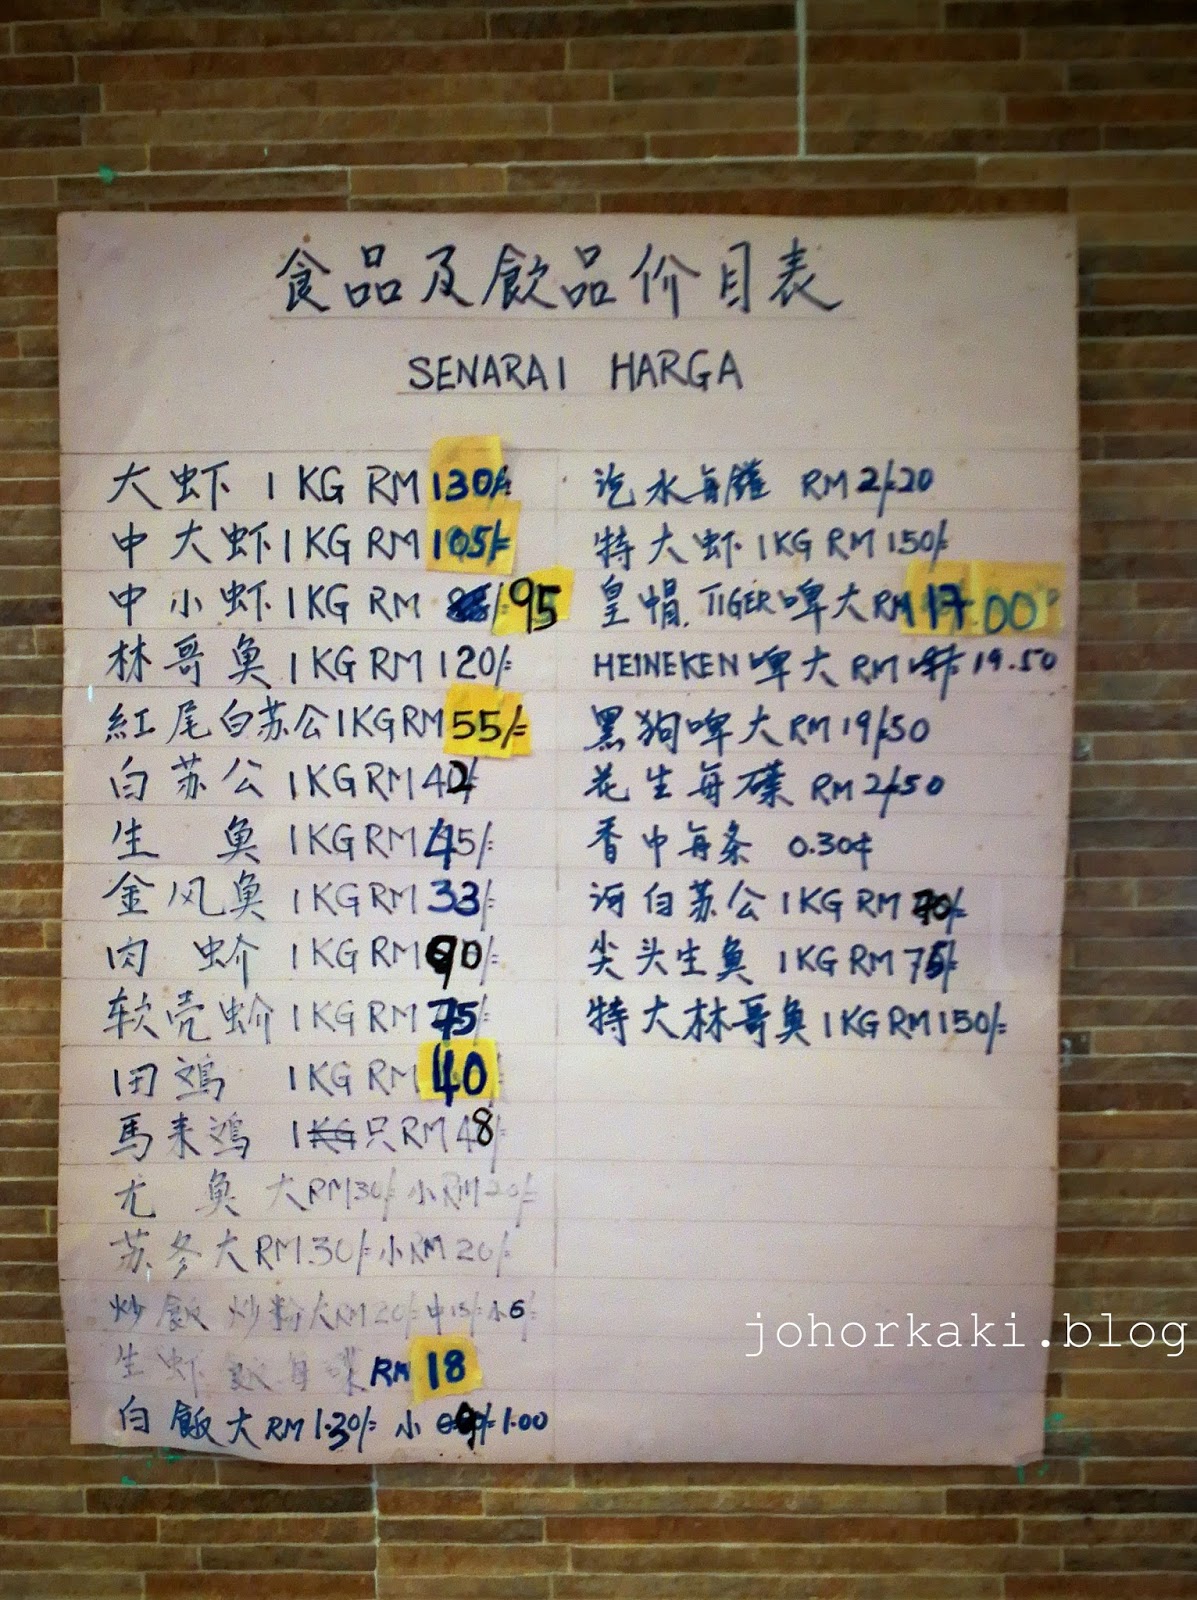 食品及飲品价目表
SENARAI HARGA
大虾 1KG RM 130/=
中大虾 1KG RM 105/=
中小虾 1KG RM 95
林哥魚 1KG RM 120/=
紅尾白苏公 1KG RM 55/=
白苏公 1KG RM 42/
生魚 1KG RM 45/=
金风魚 1KG RM 33/=
肉蚧 1KG RM 90/=
软壳蚧 1KG RM 75/=
田鸡 1KG RM 40
馬来鸡 1只 RM 48/=
尤魚 大 RM 30/= 小 RM 20/=
苏冬 大 RM 30/= 小 RM 20/=
炒飯 炒粉 大 RM 20/ 中 15/= 小 6/=
生虾 每碟 RM 18
白飯 大 RM 1.30/= 小 1.00
汽水每罐 RM 2/=20
特大虾 1KG RM 150/=
皇帽. TIGER 啤大 RM 17.00
HEINEKEN 啤大 RM 19.50
黑狗啤大 RM 19/=50
花生每碟 RM 2/=50
香巾每条 0.30¢
河白苏公 1KG RM 70/=
尖头生魚 1KG RM 75/=
特大林哥魚 1KG RM 150/=
johorkaki.blog